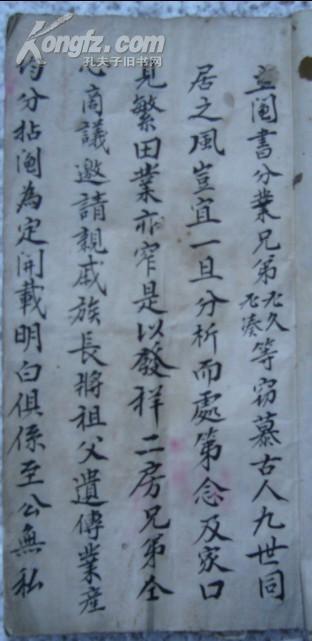 Kongfz.com
孔夫子旧书网
立阄書分業兄弟允久允湊等窃慕古人九世同
居之風豈宜一旦分析而處第念及家口
見繁田業亦窄是以發祥二房兄弟仝
心商議邀請親戚族長將祖父遺傳業產
均分拈阄為定開載明白俱係至公無私